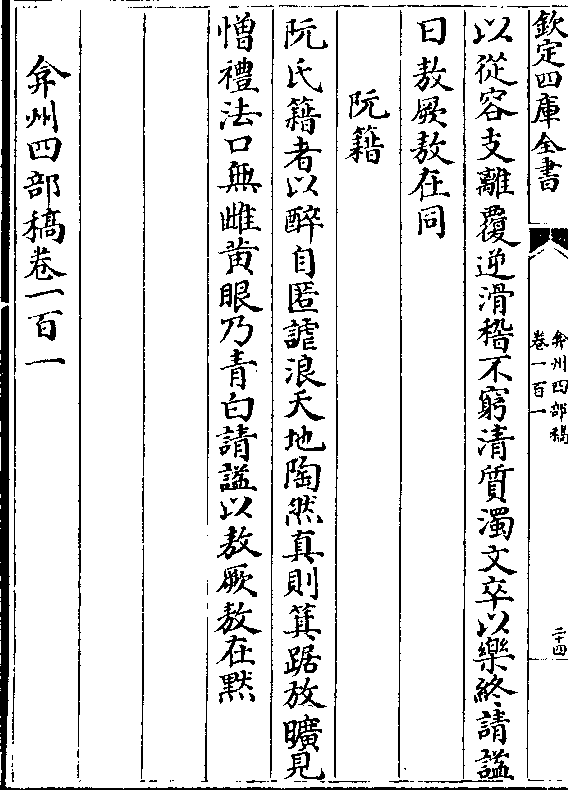 欽定四庫全書
弇州四部稿
卷一百一
二十四
以從容支離覆逆滑稽不窮清質濁文卒以樂終請謚
曰敖厥敖在同
阮籍
阮氏籍者以醉自匿謔浪天地陶然真則箕踞放曠見
憎禮法口無雌黃眼乃青白請謚以敖厥敖在黙
弇州四部稿卷一百一